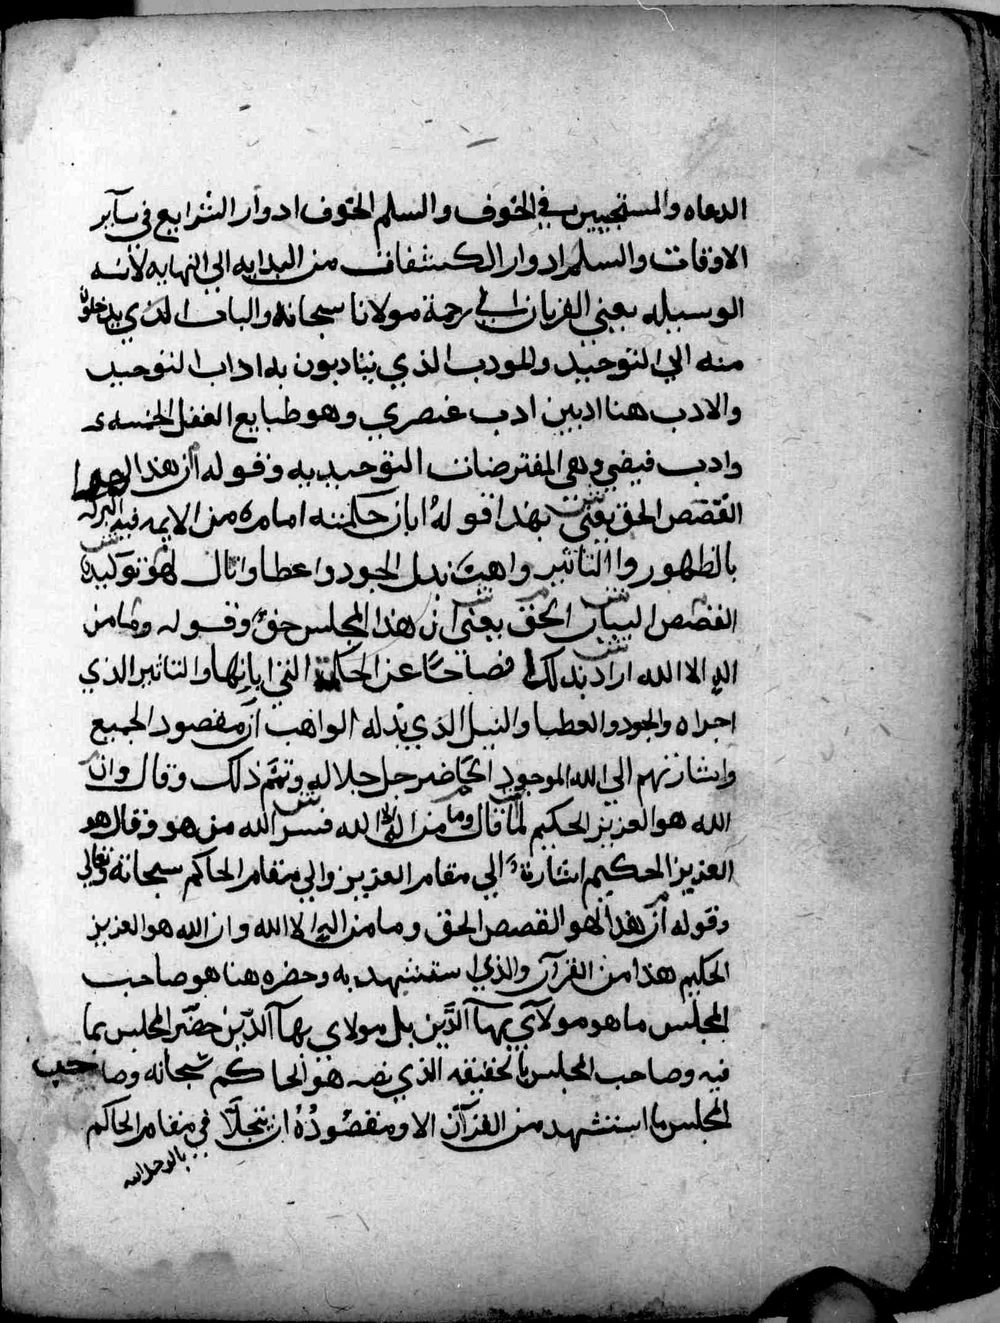 الدعاه والمستجيبين في الخوف والسلم الخوف ادوار الشرايع في ساير
الاوقات والسلم ادوار الكشفات من البدايه الي النهايه لانه
الوسيله يعني القربان الي رحمة مولانا سبحانه والباب الذي يدخلون
منه الي التوحيد والمودب الذي يتادبون به اداب التوحيد
والادب هنا ادبين ادب عنصري وهو طبايع العقل الخمسه
وادب فيضي وهي المفترضات التوحيديه وقوله ان هذا لهو
القصص الحق يعني بهذا قوله ابان حكمته امامه من الايمه فيه البركه
بالظهور والتاثير واهب بدل الجود واعطا وانال لهو توكيد
القصص البيان الحق يعني ان هذا المجلس حق وقوله وما من
اله الا الله اراد بذلك فصاحا عن الحكمة التي ابانها والتاثير الذي
اجراه والجود والعطا والنيل الذي بدله الواهب ان مقصود الجميع
واشارتهم الي الله الموجود الحاضر جل جلاله وتمم ذلك وقال وان
الله هو العزيز الحكيم لما قال وما من اله الا الله فسر الله من هو وقال هو
العزيز الحكيم اشارة الي مقام العزيز والي مقام الحاكم سبحانه وتعالي
وقوله ان هذا لهو القصص الحق وما من اله الا الله وان الله هو العزيز
الحكيم هذا من القران والذي استشهد به وحضره هنا هو صاحب
المجلس ما هو مولاي بهآ الدين بل مولاي بهآ الدين حضر المجلس بما
فيه وصاحب المجلس بالحقيقه الذي نصه هو الحاكم سبحانه وصاحب
المجلس ما استشهد من القرآن الا ومقصوده ان يتجلا في مقام الحاكم
بالوحدانيه